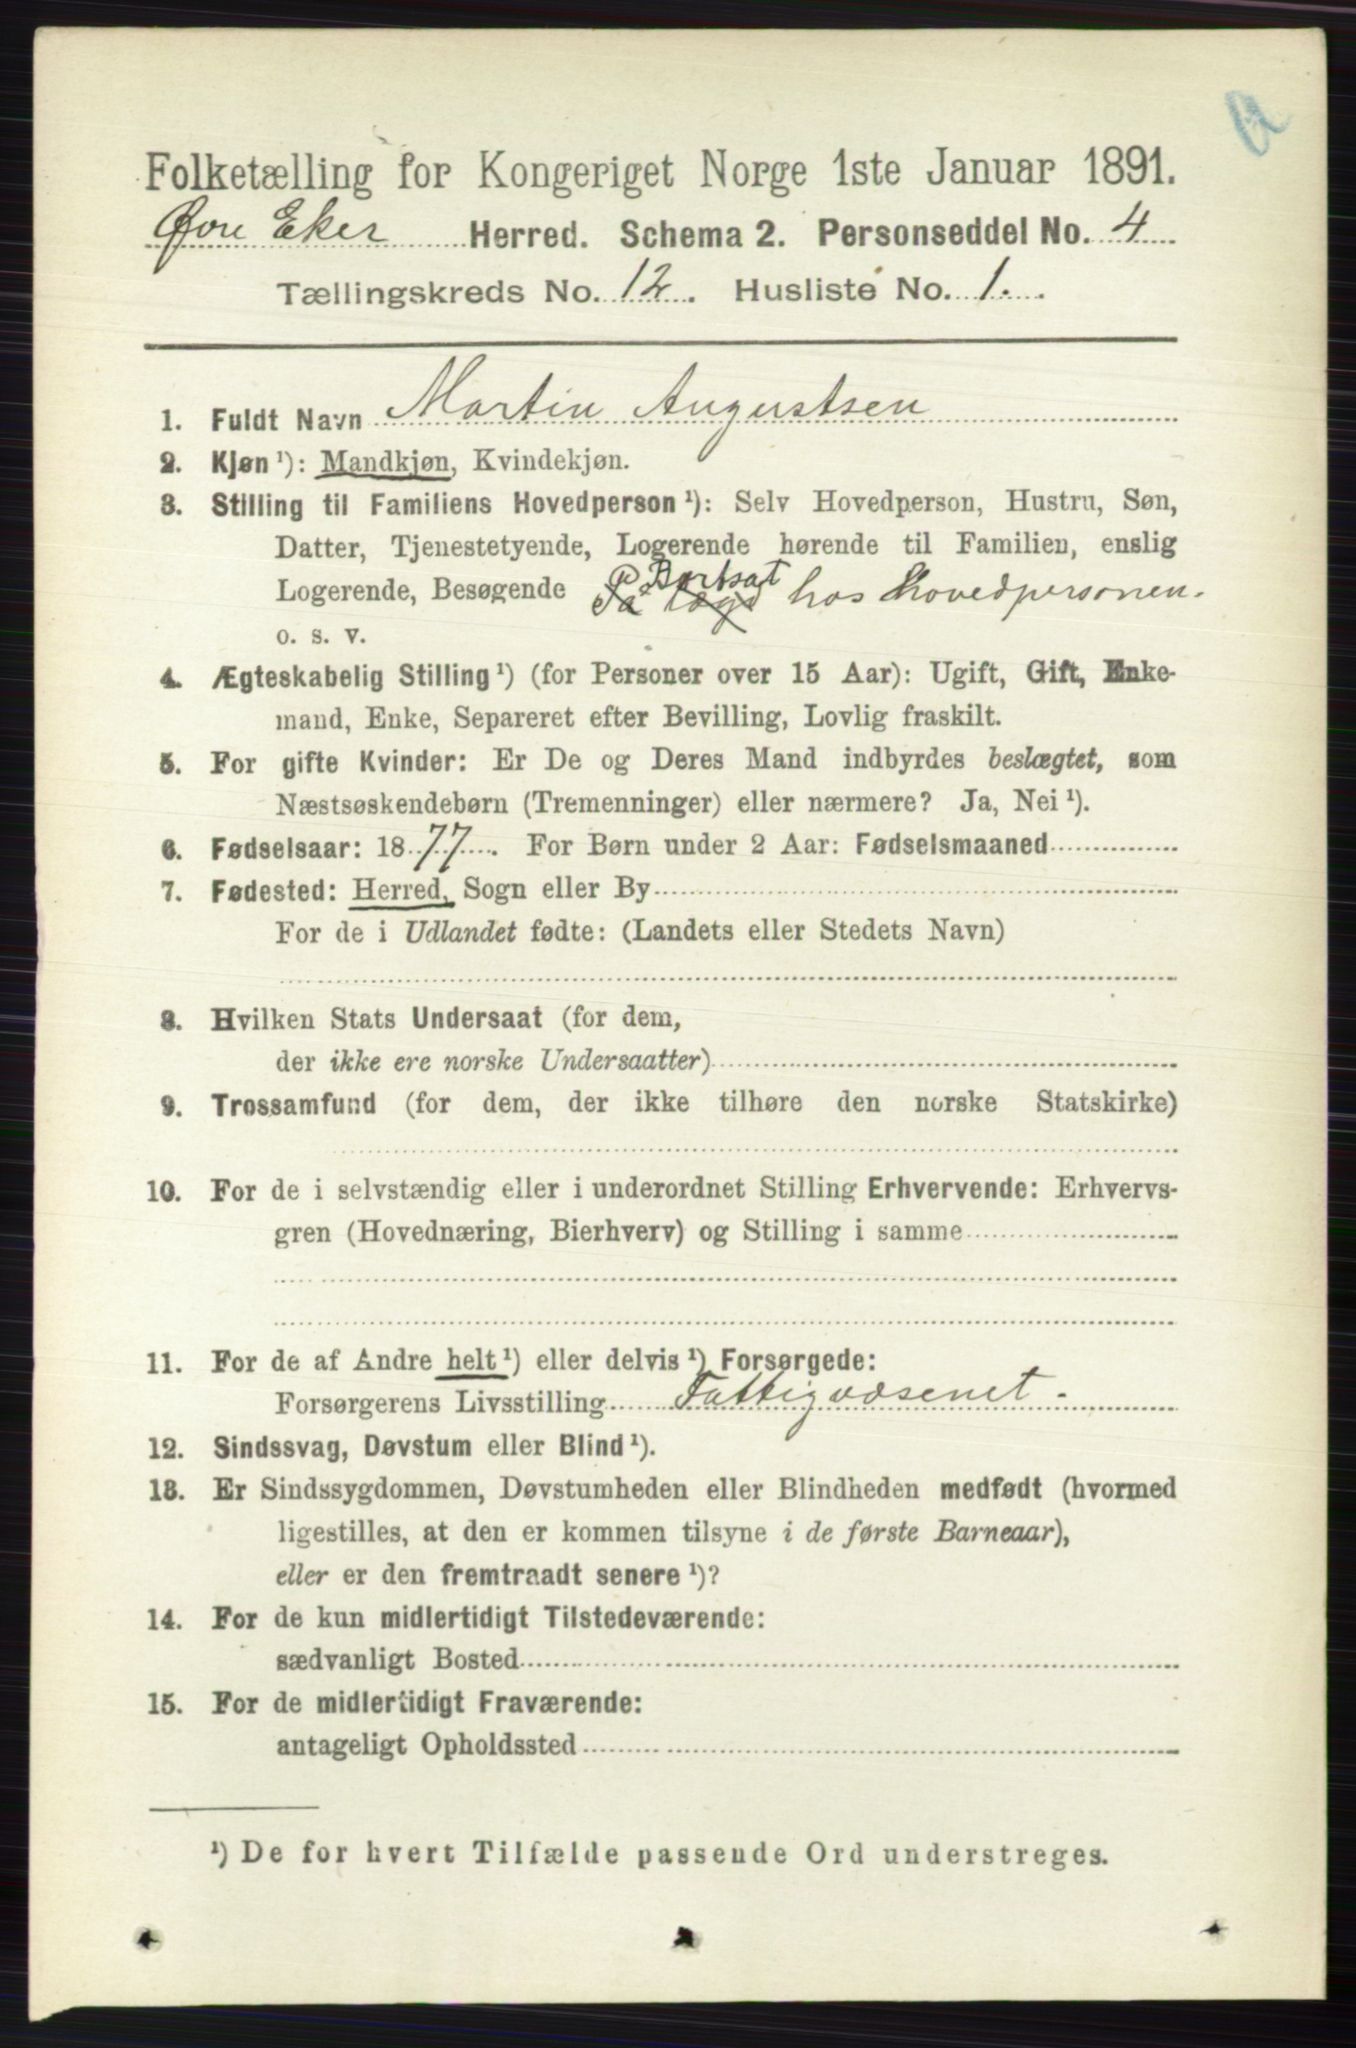 Folketælling for Kongeriget Norge 1ste Januar 1891.
Øvre Eker Herred. Schema 2. Personseddel No. 4
Tællingskreds No. 12. Husliste No. 1.
1. Fuldt Navn Martin Augustsen
2. Kjøn ¹): Mandkjøn, Kvindekjøn.
3. Stilling til Familiens Hovedperson ¹): Selv Hovedperson, Hustru, Søn,
Datter, Tjenestetyende, Logerende hørende til Familien, enslig
Logerende, Besøgende På lægd Bortsat hos hovedpersonen.
o. s. v.
4. Ægteskabelig Stilling ¹) (for Personer over 15 Aar): Ugift, Gift, Enke-
mand, Enke, Separeret efter Bevilling, Lovlig fraskilt.
5. For gifte Kvinder: Er De og Deres Mand indbyrdes beslægtet, som
Næstsøskendebørn (Tremenninger) eller nærmere? Ja, Nei ¹).
6. Fødselsaar: 1877. For Børn under 2 Aar: Fødselsmaaned
7. Fødested: Herred, Sogn eller By
For de i Udlandet fødte: (Landets eller Stedets Navn)
8. Hvilken Stats Undersaat (for dem,
der ikke ere norske Undersaatter)
9. Trossamfund (for dem, der ikke tilhøre den norske Statskirke)
10. For de i selvstændig eller i underordnet Stilling Erhvervende: Erhvervs-
gren (Hovednæring, Bierhverv) og Stilling i samme
11. For de af Andre helt ¹) eller delvis ¹) Forsørgede:
Forsørgerens Livsstilling Fattigvæsenet.
12. Sindssvag, Døvstum eller Blind ¹).
13. Er Sindssygdommen, Døvstumheden eller Blindheden medfødt (hvormed
ligestilles, at den er kommen tilsyne i de første Barneaar),
eller er den fremtraadt senere ¹)?
14. For de kun midlertidigt Tilstedeværende:
sædvanligt Bosted
15. For de midlertidigt Fraværende:
antageligt Opholdssted
¹) De for hvert Tilfælde passende Ord understreges.